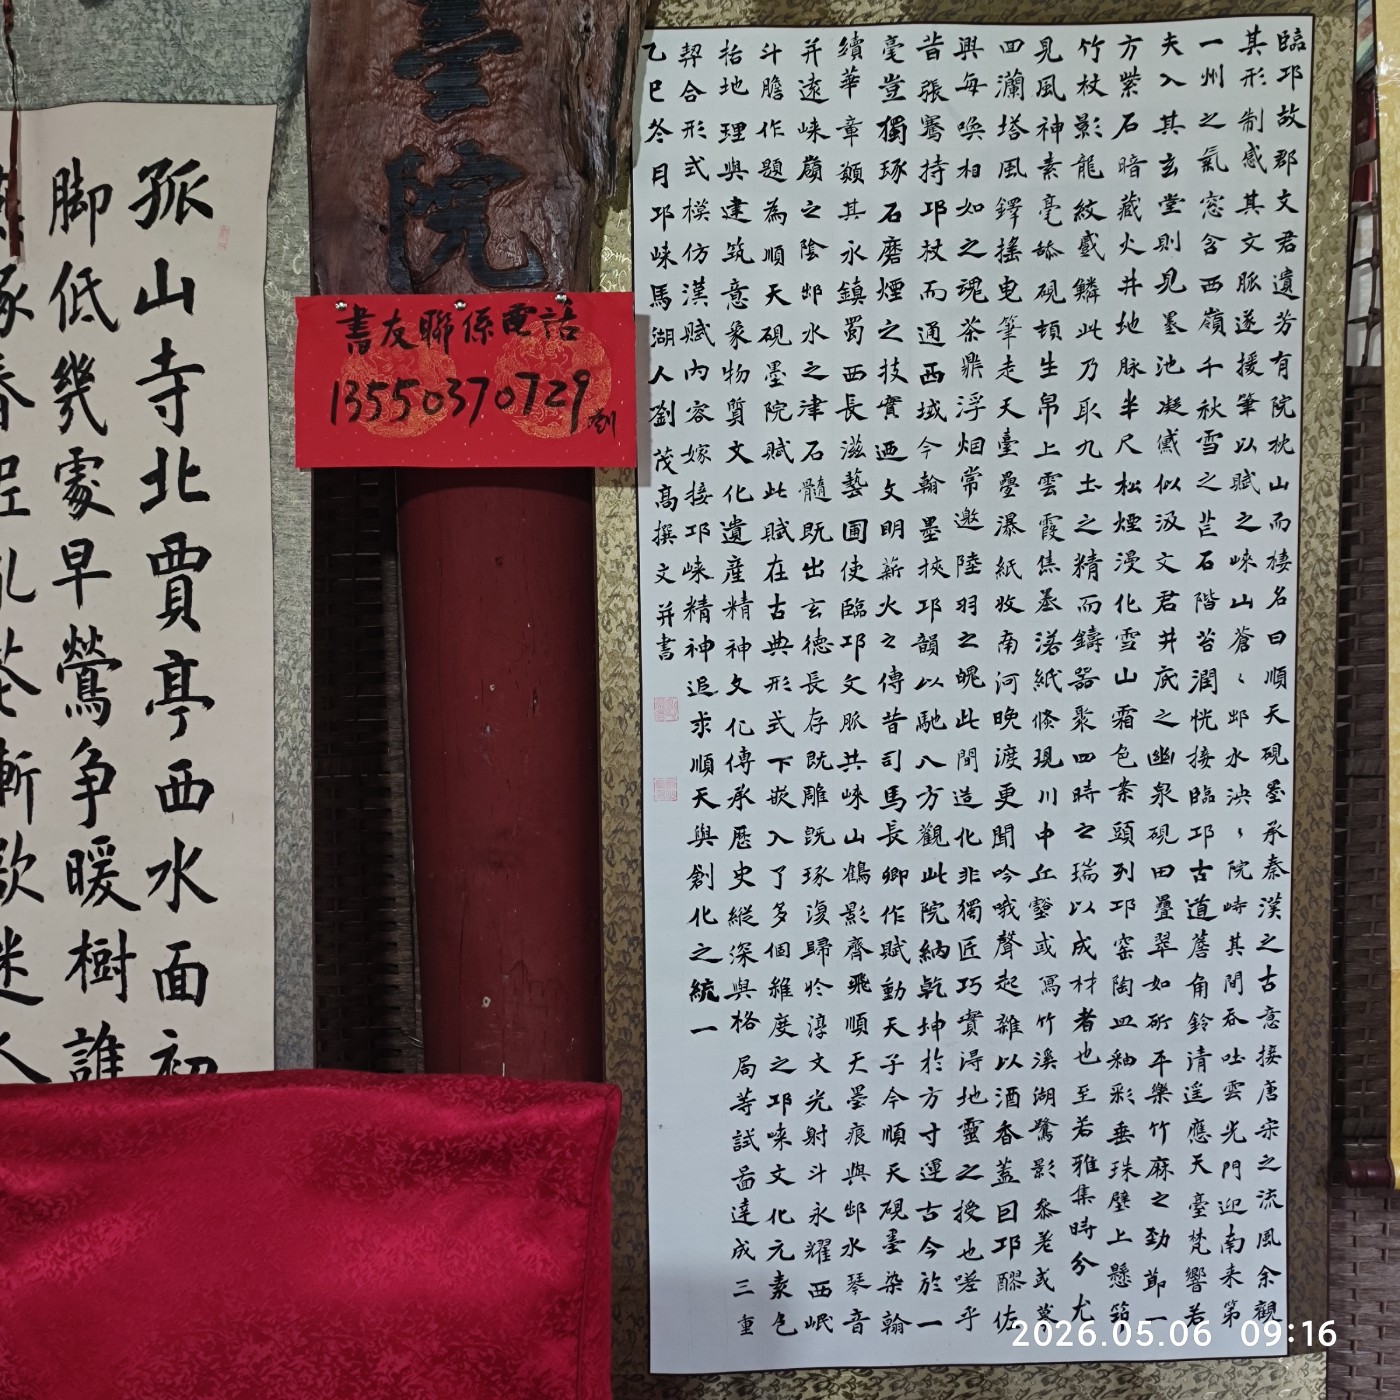 臨邛故郡文君遺芳有院枕山而棲名曰順天硯墨承秦漢之古意接唐宋之流風余觀
其形制感其文脈遂援筆以賦之崍山蒼〻邺水泱〻院峙其間吞吐雲光門迎南来第
一州之氣窓含西嶺千秋雪之芒石階苔潤恍接臨邛古道簷角鈴清遥應天臺梵響若
夫入其玄堂則見墨池凝黛似汲文君井底之幽泉硯田疊翠如斫平樂竹麻之勁節一
方紫石暗藏火井地脉半尺松煙漫化雪山霜色案頭列邛窑陶皿釉彩垂珠壁上懸筇
竹杖影龍紋戲鱗此乃取九土之精而鑄器聚四時之瑞以成材者也至若雅集時分尤
見風神素毫舔硯頓生帛上雲霞焦墨渃紙倏現川中丘壑或寫竹溪湖鷺影叅差或摹
四瀾塔風鐸搖曳筆走天臺疊瀑紙收南河晚渡更聞吟哦聲起雜以酒香蓋曰邛醪佐
興每喚相如之魂茶鼎浮烟常邀陸羽之魄此間造化非獨匠巧實淂地靈之授也嗟乎
昔張騫持邛杖而通西域今翰墨挾邛韻以馳八方觀此院納乾坤於方寸運古今於一
毫豈獨琢石磨煙之技實迺文明薪火之傳昔司馬長卿作賦動天子今順天硯墨染翰
續華章願其永鎮蜀西長滋藝圃使臨邛文脈共崍山鶴影齊飛順天墨痕與邺水琴音
并遠崍嶺之陰邺水之津石髓既出玄德長存既雕既琢復歸於淳文光射斗永耀西岷
斗膽作題為順天硯墨院賦此賦在古典形式下嵌入了多個維度之邛崍文化元素包
括地理與建筑意象物質文化遺産精神文化傳承歷史縱深與格局等試啚達成三重
契合形式模仿漢賦內容嫁接邛崍精神追求順天與創化之統一
乙巳冬月邛崍馬湖人劉茂高撰文并書
院
書友聯係電話
13550370729劉
孤山寺北賈亭西水面初
脚低幾處早鶯争暖樹誰
2026.05.06 09:16